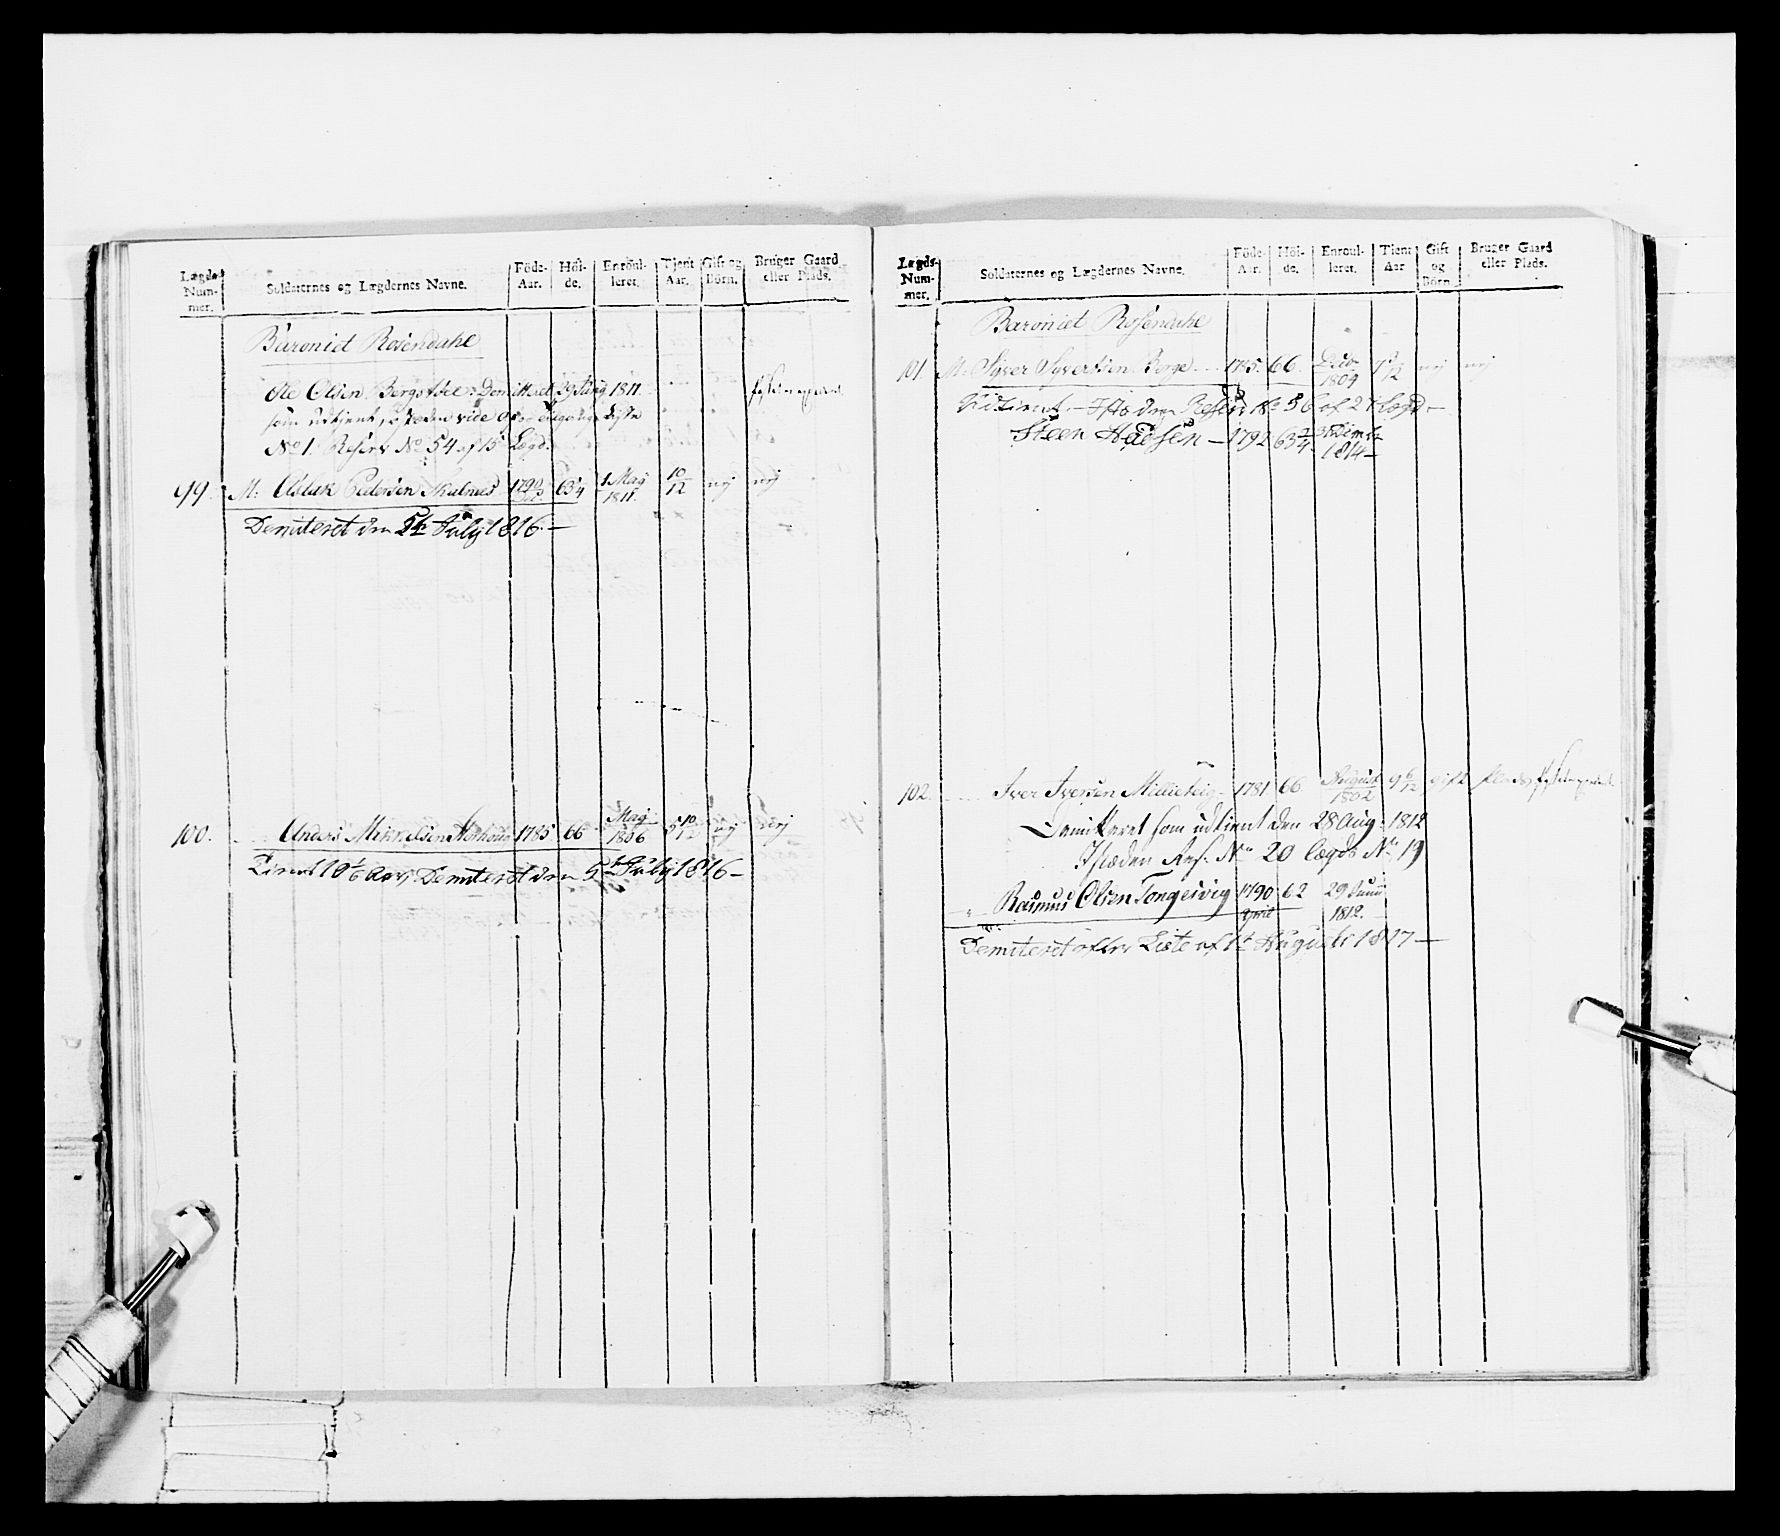 Lægds- Num- mer. Soldaternes og Lægdernes Navne. Föde- Aar. Höi- de. Enroul- leret. Tjent Aar. Gift og Börn. Bruger Gaard eller Plads.
Baroniet Rosendahl
Ole Olsen Demitteret 29 1811
som udtjent, isteden vide
No 1. Reserv No 54 af 15 Lægd.
99. M: Aslak Pedersen 1790 63 1/4 1 May 1811. 10/12 nej nej
Demiteret den 5te July 1816.—
100. Anders Mikkelsen 1785 66 May 1806 5 10/12 nej nej
Demiteret den 5te July 1816—
Lægds- Num- mer. Soldaternes og Lægdernes Navne. Föde- Aar. Höi- de. Enroul- leret. Tient Aar Gift og Börn Bruger Gaard eller Plads.
Baroniet Rosendahl
101. M. Syver Syversen Berge 1785. 66. 1804 nej nej
Udtient — Isteden Reserv No 56 af 21 Lægd —
Steen — 1792 63 3/4 1814—
102. Iver Iversen 1781 66 August 1802 9 6/12 gift plads
Demitteret som udtient den 28 Aug: 1812
Isteden Res: No 20 Lægds No 19
" Rasmus Olsen Tongesvig 1790 April 62 29 Juni 1812.
Demiteret efter Liste af 1t Augusti 1817—